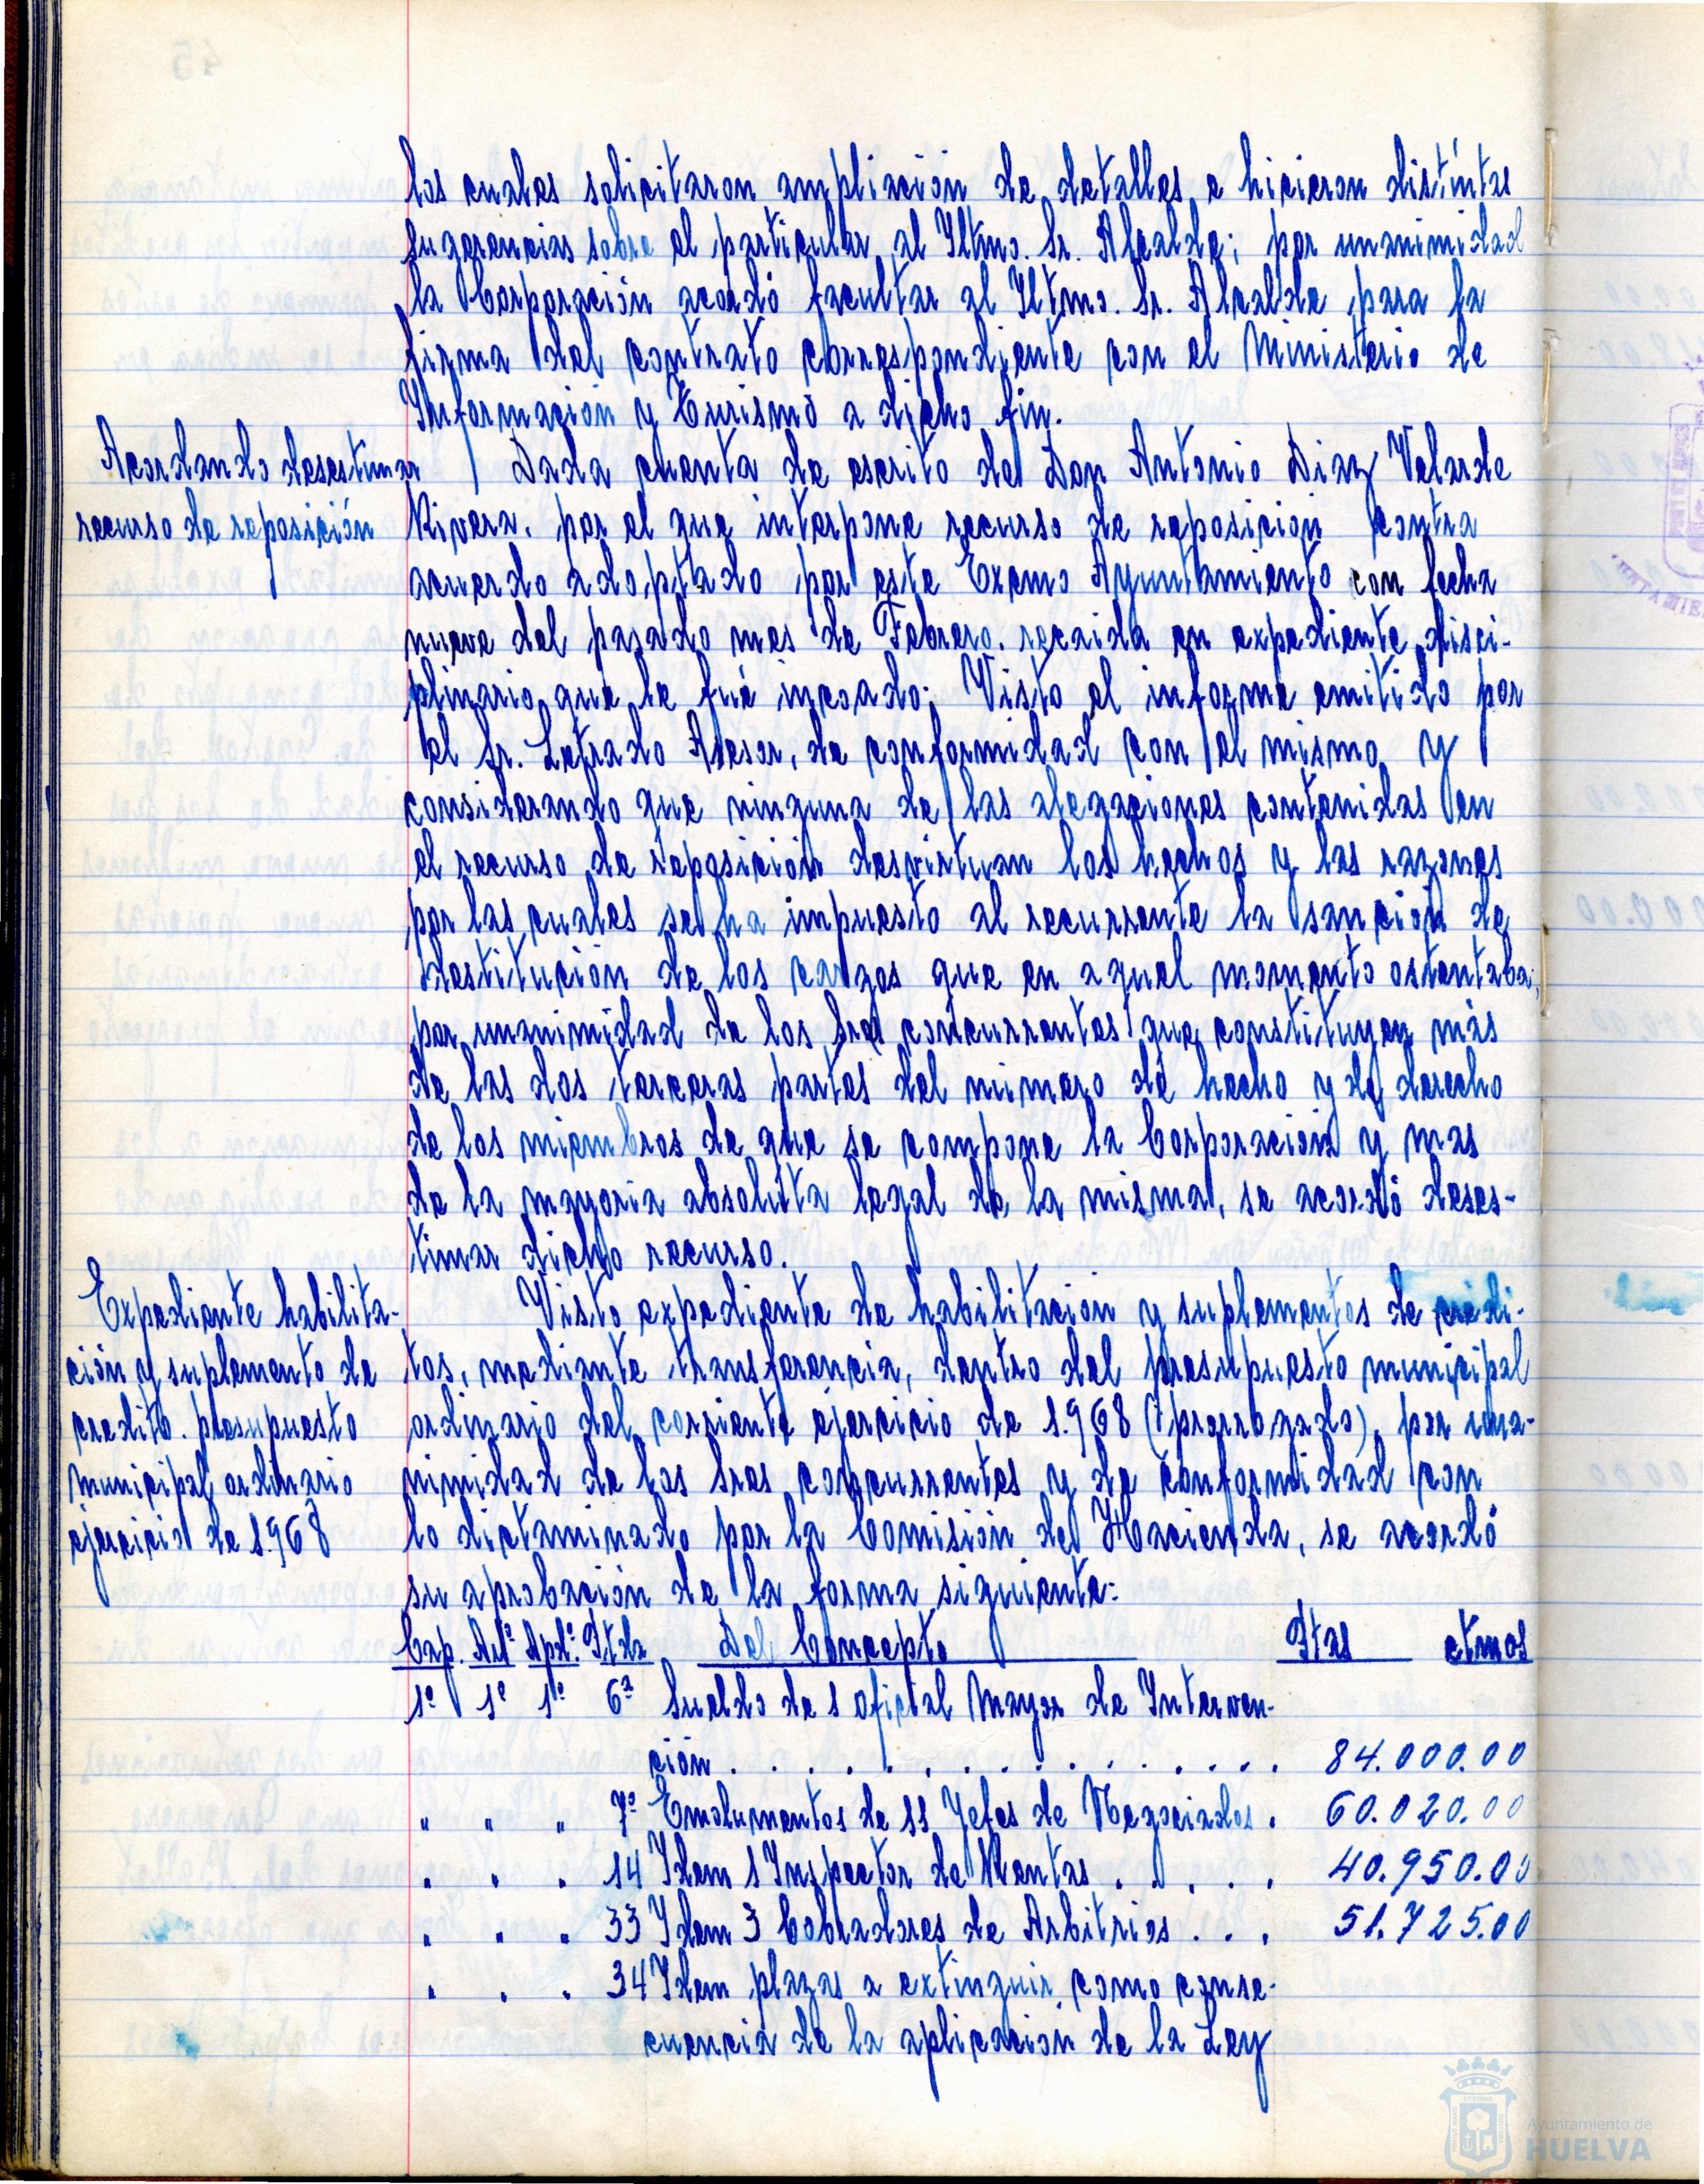 los cuales solicitaron ampliación de detalles e hicieron distintas
sugerencias sobre el particular al Iltmo. Sr. Alcalde; por unanimidad
la Corporación acordó facultar al Iltmo. Sr. Alcalde para la
firma del contrato correspondiente con el Ministerio de
Información y Turismo a dicho fin.
Acordando desestimar
recurso de reposición
Dada cuenta de escrito de Don Antonio Diaz Velarde
Rivera. por el que interpone recurso de reposición contra
acuerdo adoptado por este Excmo Ayuntamiento con fecha
nueve del pasado mes de Febrero. recaida en expediente disci-
plinario que le fué incoado; Visto el informe emitido por
el Sr. Letrado Asesor, de conformidad con el mismo y
considerando que ninguna de las alegaciones contenidas en
el recurso de reposición desvirtuan los hechos y las razones
por las cuales se ha impuesto al recurrente la sanción de
destitución de los cargos que en aquel momento ostentaba;
por unanimidad de los Sres concurrentes que constituyen más
de las dos terceras partes del número de hecho y de derecho
de los miembros de que se compone la Corporación y mas
de la mayoria absoluta legal de la misma, se acordó deses-
timar dicho recurso.
Expediente habilita-
ción y suplemento de
credito. presupuesto
municipal ordinario
ejercicio de 1.968
Visto expediente de habilitación y suplementos de credi-
tos, mediante transferencia, dentro del presupuesto municipal
ordinario del corriente ejercicio de 1.968 (prorrogado), por una-
nimidad de los Sres concurrentes y de conformidad con
lo dictaminado por la Comisión de Hacienda, se acordó
su aprobación de la forma siguiente:
Cap. Artº Apdº. Ptda Del Concepto Ptas ctmos
1º 1º 1º 6ª Sueldo de 1 oficial Mayor de Interven-
ción . . . . . . . . . . . . . . . 84.000.00
" " " 7ª Emolumentos de 11 Jefes de Negociados . 60.020.00
" " " 14 Idem 1 Inspector de Rentas . . . . . 40.950.00
" " " 33 Idem 3 Cobradores de Arbitrios . . . 51.725.00
" " " 34 Idem plazas a extinguir como conse-
cuencia de la aplicación de la Ley
Ayuntamiento de
HUELVA